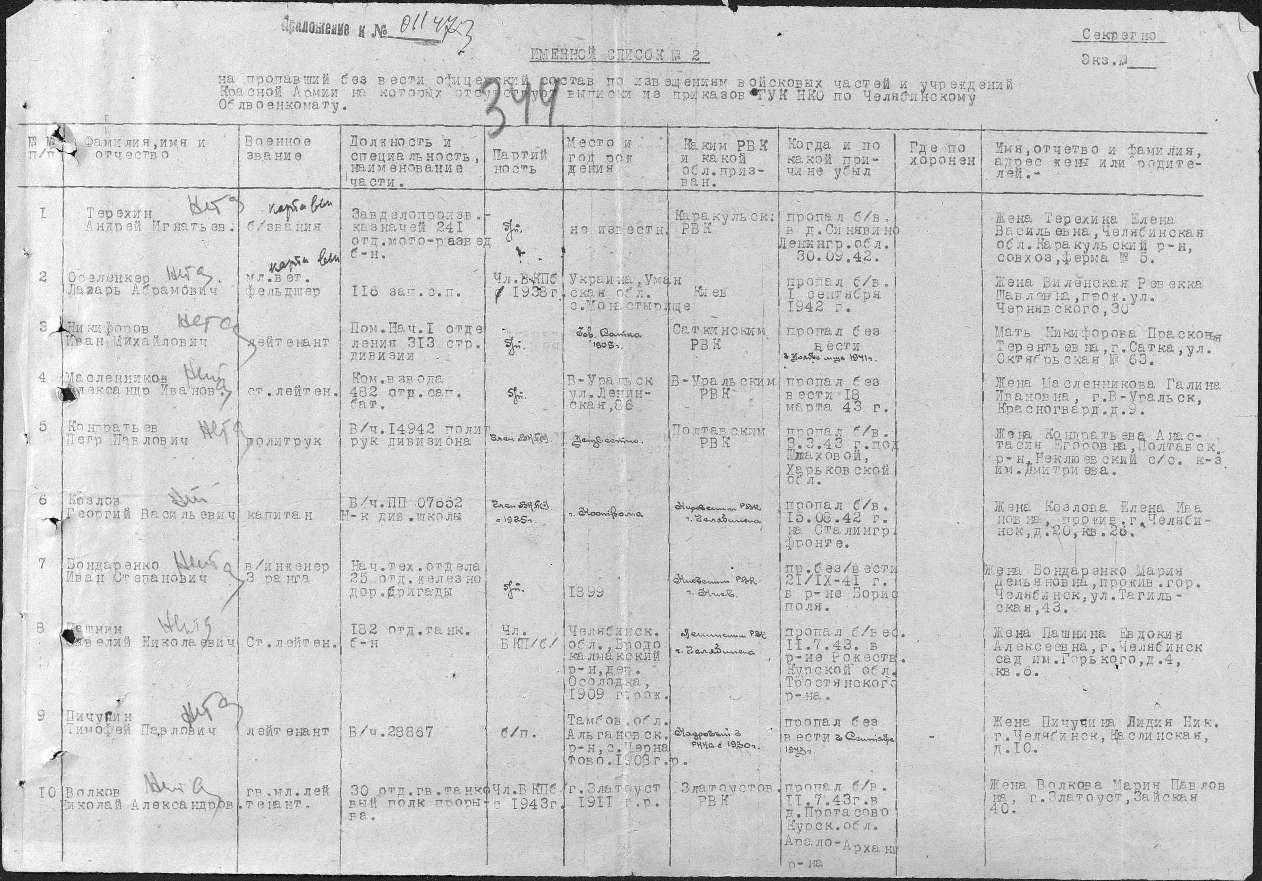 Приложение к № 011473
Секретно
ИМЕННОЙ СПИСОК № 2
Экз.№
на пропавший без вести офицерский состав по извещениям войсковых частей и учреждений
Красной Армии на которых отсутствуют выписки из приказов ГУК НКО по Челябинскому
Облвоенкомату.
344
№№ п/п
Фамилия,имя и
отчество
Военное
звание
Должность и
специальность,
наименование
части.
Партий
ность
Место и
год рож
дения
Каким РВК
и какой
обл.приз-
ван.
Когда и по
какой при-
чине убыл
Где по
хоронен
Имя,отчетво и фамилия,
адрес жены или родите-
лей.-
1
Терехин
Андрей Игнатьев.
б/звания
Завделопроизв.-
казначей 241
отд.мото-развед
б-н.
не известн.
Каракульск.
РВК
пропал б/в.
в д.Синявино
Ленингр.обл.
30.09.42.
Жена Терехина Елена
Васильевна,Челябинская
обл.Каракульский р-н,
совхоз,ферма № 5.
2
Оселенкер
Лазарь Абрамович
мл.вет.
фельдшер
116 зап.с.п.
Чл.ВКПб
1938г.
Украина,Уман
ская обл.
с.Монастырище
Киев
пропал б/в.
1 сентября
1942 г.
Жена Виленская Ревекка
Павловна,прож.ул.
Чернявского,30
3
Никифоров
Иван Михайлович
лейтенант
Пом.Нач.1 отде
ления 313 стр.
дивизии
гор. Сатка
1908г.
Саткинским
РВК
пропал без
вести
в ноябре м-це 1941г.
Мать Никифорова Прасковья
Терентьевна,г.Сатка,ул.
Октябрьская № 63.
4
Масленников
Александр Иванов.
ст.лейтен.
Ком.взвода
482 отд.сап.
бат.
В-Уральск
ул.Ленин-
ская,86
В-Уральским
РВК
пропал без
вести 18
марта 43 г.
Жена Масленникова Галина
Ивановна, г.В-Уральск,
Красногвард.д.9.
5
Кондратьев
Петр Павлович
политрук
В/ч.14942 полит
рук дивизиона
Член ВКП(б)
Неизвестно.
Полтавским
РВК
пропал б/в.
3.3.43 г.под
Шлаховой,
Харьковской
обл.
Жена Кондратьева Анас-
тасия Егоровна,Полтавск.
р-н,Неклюевский с/с. к-з
им.Дмитриева.
6
Козлов
Георгий Васильевич
капитан
В/ч.ПП 07652
Н-к див.школы
Член ВКП(б)
с 1925г.
г. Кострома
Кировским РВК
г. Челябинска
пропал б/в.
15.08.42 г.
на Сталингр.
фронте.
Жена Козлова Елена Ива
новна, прожив.г.Челяби-
нск,д.20,кв.26.
7
Бондаренко
Иван Степанович
в/инженер
3 ранга
Нач.тех.отдела
25 отд.железно
дор.бригады
1899
г. Киев.
пр.без/вести
21/IX-41 г.
в р-не Борис
поля.
Жена Бондаренко Мария
Демьяновна,прожив.гор.
Челябинск,ул.Тагиль-
ская,43.
8
Пашнин
Савелий Николаевич
Ст.лейтен.
182 отд.танк.
б-н
Чл.
ВКП/б/
Челябинск.
обл.,Бродо
калмакский
р-н,дер.
Осолодка,
1909 г.рож.
Ленинским РВК
г. Челябинска
пропал б/вес.
11.7.43. в
р-не Рожеств.
Курской обл.
Тростянского
р-на.
Жена Пашнина Евдокия
Алексеевна,г.Челябинск
сад им.Горького,д.4,
кв.6.
9
Пичугин
Тимофей Павлович
лейтенант
В/ч.28867
б/п.
Тамбов.обл.
Альгановск.
р-н,с.Черна
тово.1908г.р.
Кадровый в
РККА с 1930г.
пропал без
вести в сентябре
1943г.
-
Жена Пичугина Лидия Ник.
г.Челябинск,Каслинская,
д.10.
10
Волков
Николай Александров.
гв.мл.лей
тенант.
30 отд.гв.танко
вый полк проры-
ва.
Чл.ВКПб
с 1943г.
г.Златоуст
1911 г.р.
Златоустов.
РВК
пропал б/в.
11.7.43г.в
д.Протасово
Курск.обл.
Арало-Архани
р-на
Жена Волкова Мария Павлов
на, г.Златоуст,Зайская
40.